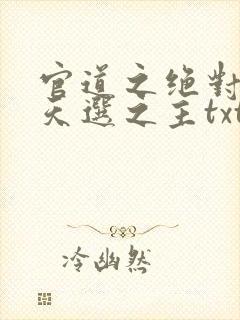 官道之绝對
天選之主txt
冷幽然